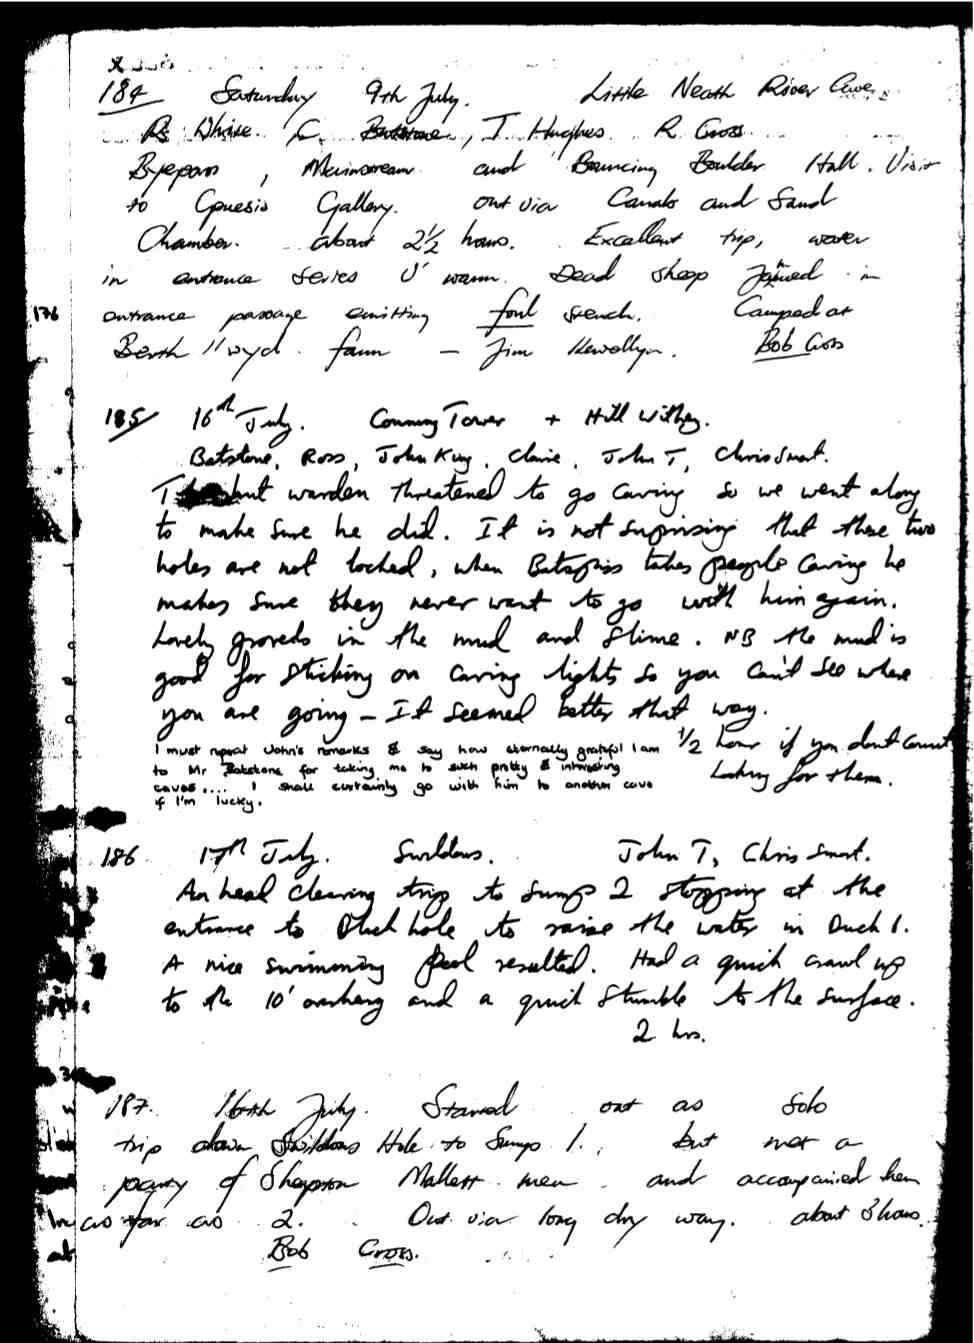 184 Saturday 9th July. Little Neath River Cave.
R. White. C. Batstone, J Hughes. R Cross.
Byepass, Mainstream and Bouncing Boulder Hall. Visit
to Genesis Gallery. out via Canals and Sand
Chamber. about 2½ hours. Excellent trip, water
in entrance series v' warm. Dead sheep jammed in
176 entrance passage emitting foul stench. Camped at
Berth llwyd farm - Jim Llewellyn. Bob Cross
185 16th July. Conning Tower + Hill Withy.
Batstone, Ross, John King, Claire, John T, Chris Smart.
T hut warden threatened to go caving so we went along
to make sure he did. It is not suprising that these two
holes are not locked, when Batspiss takes people caving he
makes sure they never want to go with him again.
Lovely grovels in the mud and slime. NB the mud is
good for sticking on caving lights so you can't see where
you are going - It seemed better that way.
½ hour if you dont count
looking for them.
I must repeat John's remarks & say how eternally grateful I am
to Mr Batstone for taking me to such pretty & interesting
caves.... I shall certainly go with him to another cave
if I'm lucky.
186 17th July. Swildons. John T, Chris Smart.
An head clearing trip to Sump 2 stopping at the
entrance to Black hole to raise the water in Duck 1.
A nice swimming pool resulted. Had a quick crawl up
to the 10' overhang and a quick stumble to the surface.
2 hrs.
187. 16th July. Started out as solo
trip down Swildons Hole to Sump 1., but met a
party of Shepton Mallett men and accompanied them
as far as 2. Out via long dry way. about 3 hours.
Bob Cross.